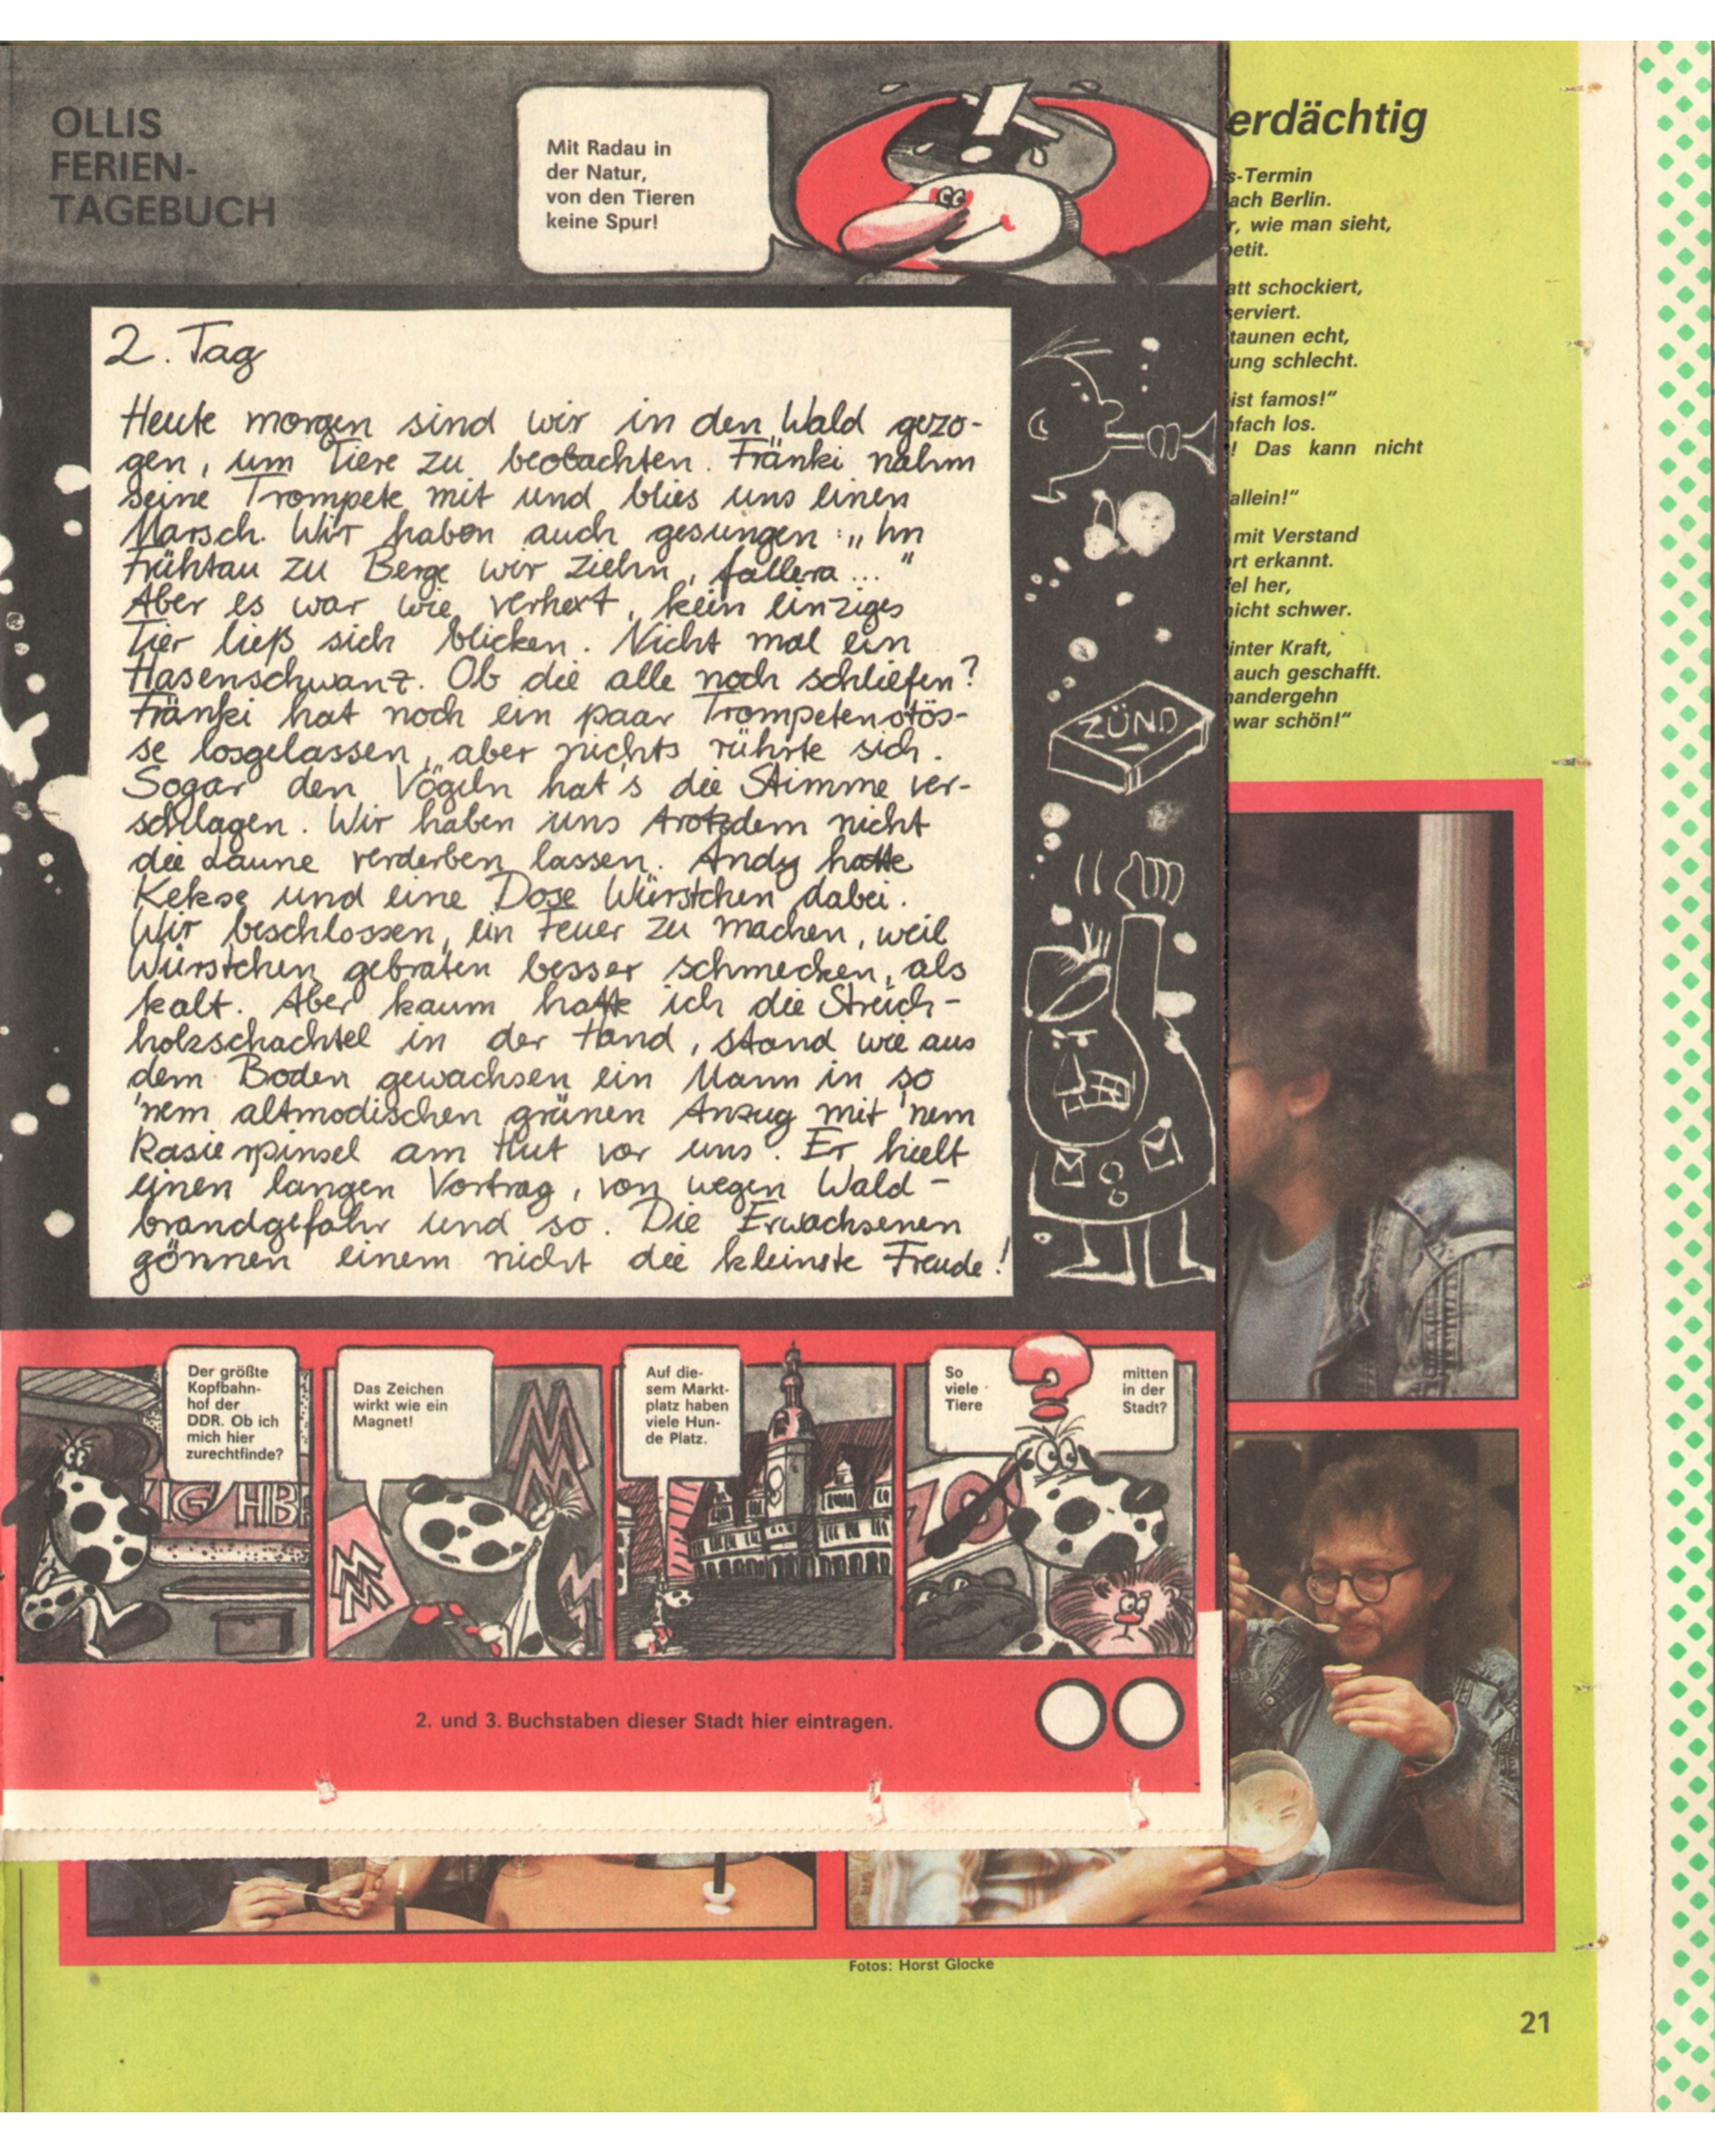 OLLIS
FERIEN-
TAGEBUCH
Mit Radau in
der Natur,
von den Tieren
keine Spur!
2. Tag
Heute morgen sind wir in den Wald gezo-
gen, um Tiere zu beobachten. Fränki nahm
seine Trompete mit und blies uns einen
Marsch. Wir haben auch gesungen: „Im
Frühtau zu Berge wir ziehn, fallera..."
Aber es war wie verhext, kein einziges
Tier ließ sich blicken. Nicht mal ein
Hasenschwanz. Ob die alle noch schliefen?
Fränki hat noch ein paar Trompetenstös-
se losgelassen, aber nichts rührte sich.
Sogar den Vögeln hat's die Stimme ver-
schlagen. Wir haben uns trotzdem nicht
die Laune verderben lassen. Andy hatte
Kekse und eine Dose Würstchen dabei.
Wir beschlossen, ein Feuer zu machen, weil
Würstchen gebraten besser schmecken, als
kalt. Aber kaum hatte ich die Streich-
holzschachtel in der Hand, stand wie aus
dem Boden gewachsen ein Mann in so
'nem altmodischen grünen Anzug mit 'nem
Rasierpinsel am Hut vor uns. Er hielt
einen langen Vortrag, von wegen Wald-
brandgefahr und so. Die Erwachsenen
gönnen einem nicht die kleinste Freude!
ZÜND
Der größte
Kopfbahn-
hof der
DDR. Ob ich
mich hier
zurechtfinde?
IG HBF
Das Zeichen
wirkt wie ein
Magnet!
MM
MM
Auf die-
sem Markt-
platz haben
viele Hun-
de Platz.
So viele Tiere ? mitten in der Stadt?
ZOO
2. und 3. Buchstaben dieser Stadt hier eintragen.
erdächtig
s-Termin
ach Berlin.
r, wie man sieht,
etit.
att schockiert,
serviert.
taunen echt,
ung schlecht.
ist famos!"
nfach los.
! Das kann nicht
allein!"
mit Verstand
ort erkannt.
fel her,
nicht schwer.
inter Kraft,
auch geschafft.
nandergehn
war schön!"
Fotos: Horst Glocke
21